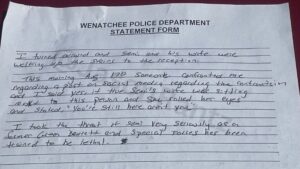 WENATCHEE POLICE DEPARTMENT
STATEMENT FORM
I turned around and Semi and his wife were
walking up the stairs to the reception.
This morning Aug 19th someone confronted me
regarding a post on social media regarding the confrontation
and I said yes it the Semi's wife was sitting
next to this person and She rolled her eyes
and stated, "You're still here aren't you".
I took the threat of Semi very seriously as a
former Green Beret and Special Forces has been
trained to be lethal.